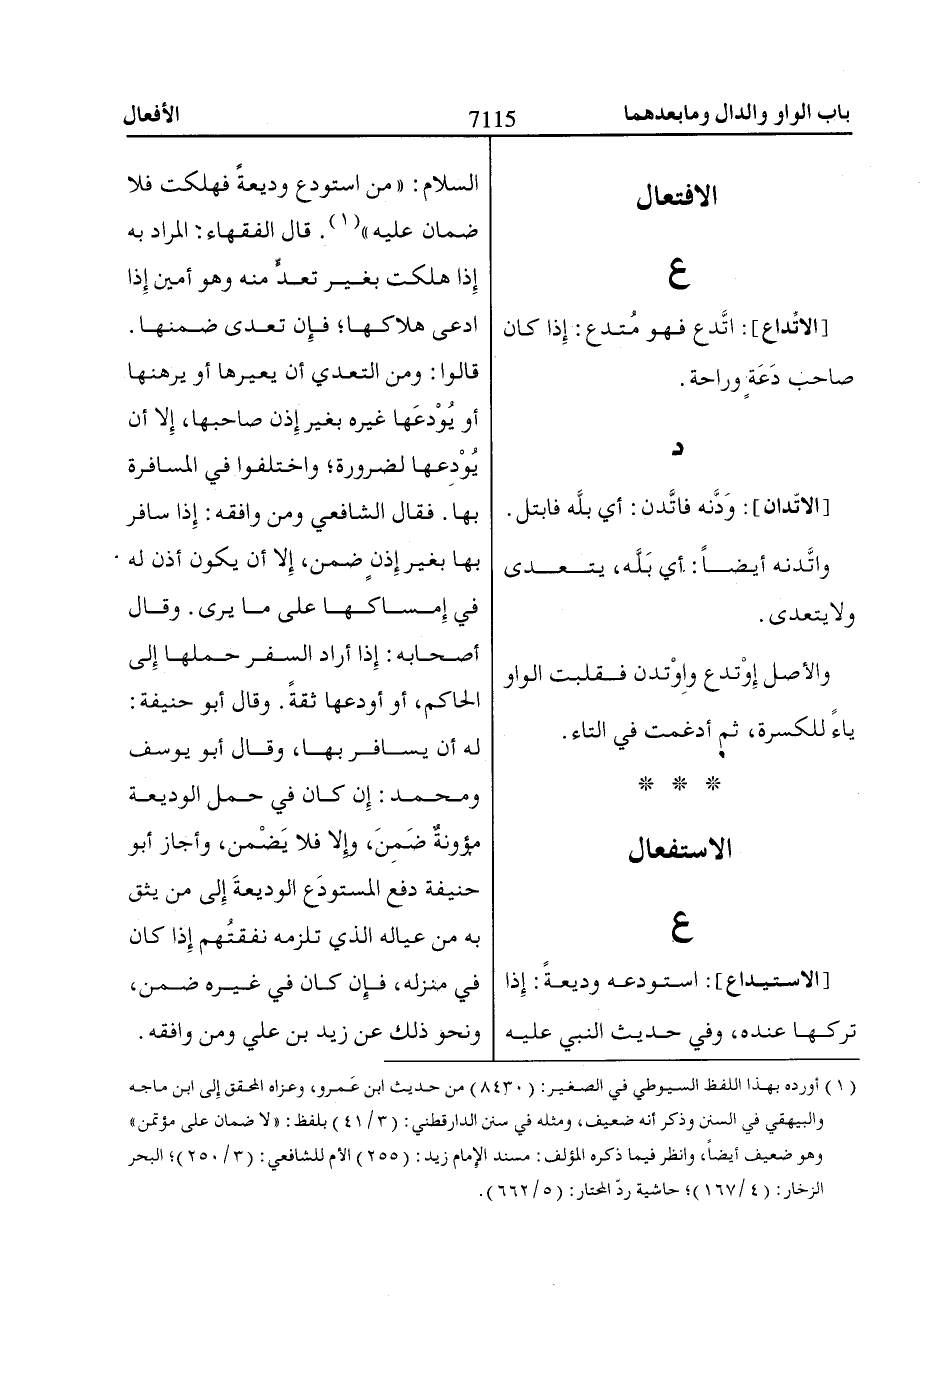 باب الواو والدال ومابعدهما
7115
الأفعال
الافتعال
ع
[الاتِّداع]: اتَّدع فهو مُتدع: إذا كان
صاحب دَعَةٍ وراحة.
د
[الاتّدان]: وَدَّنه فاتَّدن: أي بلَّه فابتل.
واتَّدنه أيضاً: أي بَلَّه، يتعدى
ولايتعدى.
والأصل إوْتدع وإوْتدن فقلبت الواو
ياءً للكسرة، ثم أدغمت في التاء.
* * *
الاستفعال
ع
[الاستيداع]: استودعه وديعةً: إذا
تركها عنده، وفي حديث النبي عليه
السلام: «من استودع وديعةً فهلكت فلا
ضمان عليه»(١). قال الفقهاء: المراد به
إذا هلكت بغير تعدٍّ منه وهو أمين إذا
ادعى هلاكها؛ فإن تعدى ضمنها.
قالوا: ومن التعدي أن يعيرها أو يرهنها
أو يُوْدعَها غيره بغير إذن صاحبها، إلا أن
يُوْدِعها لضرورة؛ واختلفوا في المسافرة
بها. فقال الشافعي ومن وافقه: إذا سافر
بها بغير إذنٍ ضمن، إلا أن يكون أذن له
في إمساكها على ما يرى. وقال
أصحابه: إذا أراد السفر حملها إلى
الحاكم، أو أودعها ثقةً. وقال أبو حنيفة:
له أن يسافر بها، وقال أبو يوسف
ومحمد: إن كان في حمل الوديعة
مؤونةٌ ضَمِنَ، وإلا فلا يَضْمن، وأجاز أبو
حنيفة دفع المستودَع الوديعةَ إلى من يثق
به من عياله الذي تلزمه نفقتُهم إذا كان
في منزله، فإن كان في غيره ضمن،
ونحو ذلك عن زيد بن علي ومن وافقه.
(١) أورده بهذا اللفظ السيوطي في الصغير: (٨٤٣٠) من حديث ابن عَمرو، وعزاه المحقق إلى ابن ماجه
والبيهقي في السنن وذكر أنه ضعيف، ومثله في سنن الدارقطني: (٣/ ٤١) بلفظ: «لا ضمان على مؤتمن»
وهو ضعيف أيضاً، وانظر فيما ذكره المؤلف: مسند الإمام زيد: (٢٥٥) الأم للشافعي: (٣/ ٢٥٠)؛ البحر
الزخار: (٤/ ١٦٧)؛ حاشية ردّ المحتار: (٥/ ٦٦٢).